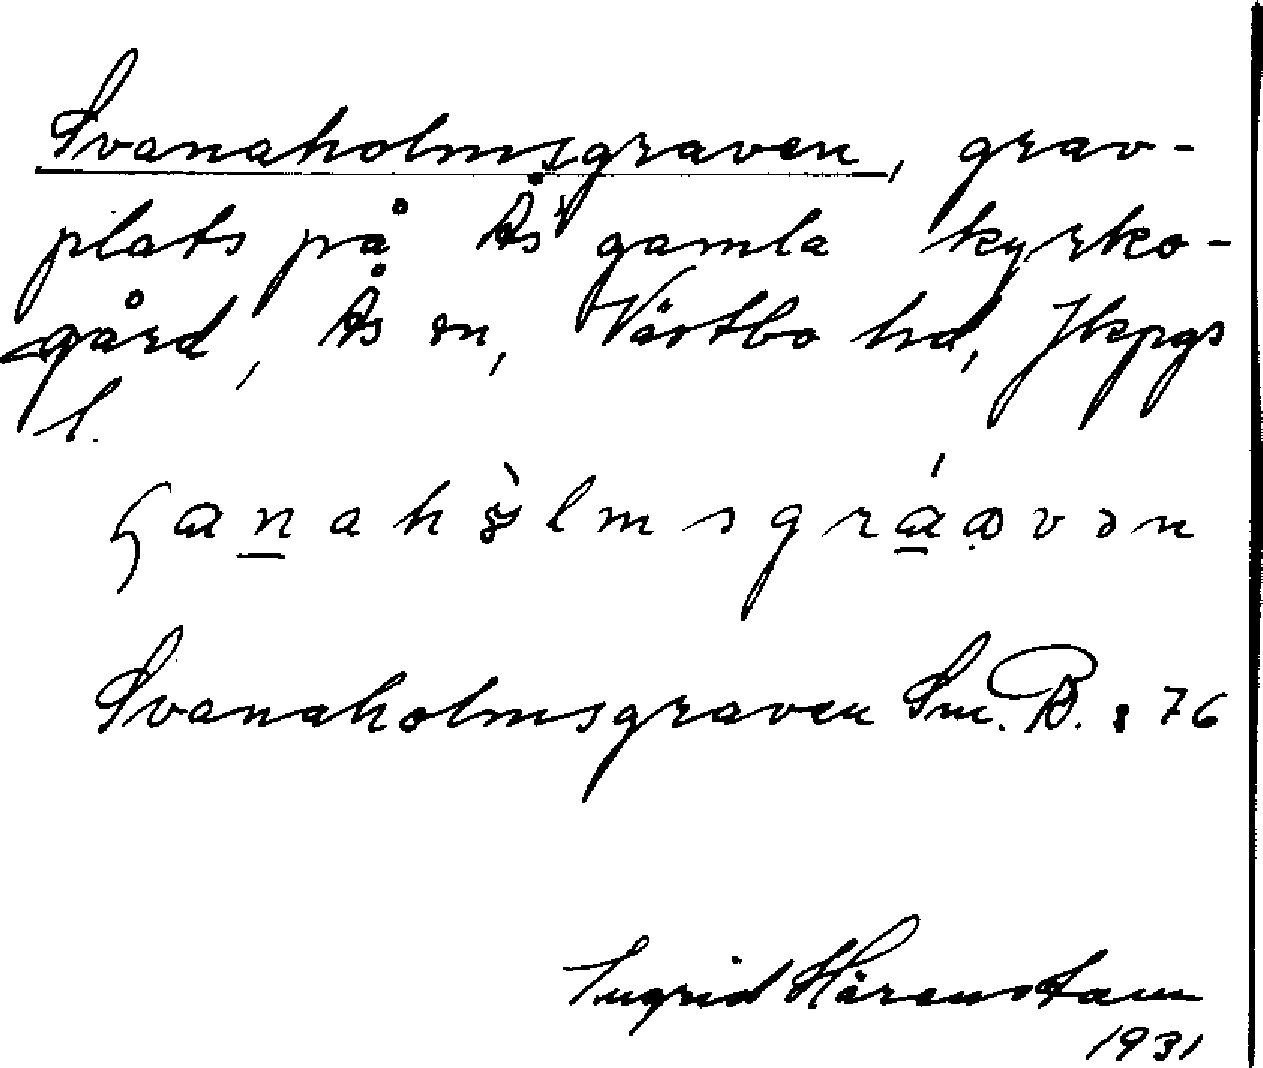 Svanaholmsgraven, grav-
plats på Ås gamla kyrko-
gård, Ås sn, Västbo hd, Jkpgs
l.
Svanaholmsgraven Sm. B. : 76
Ingrid Härenstam
1931